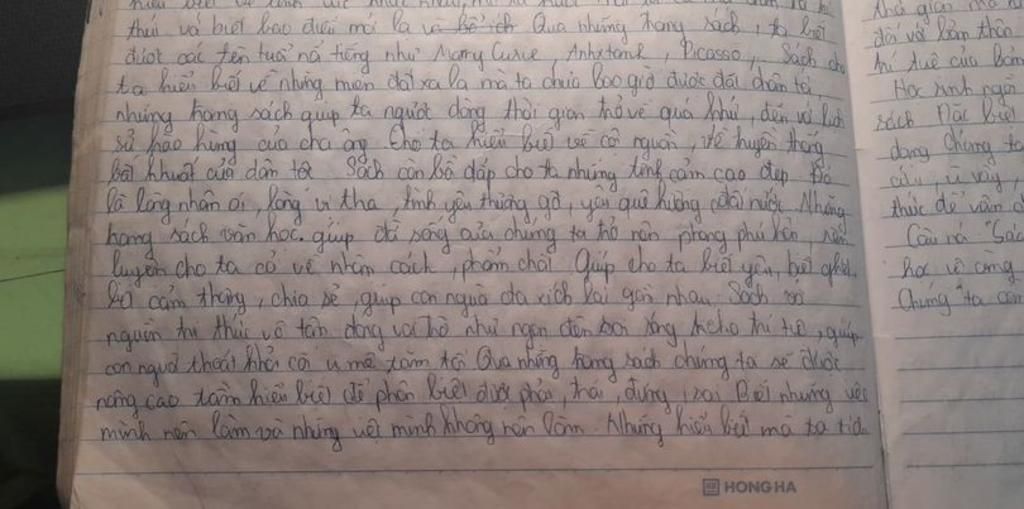 thú và biết bao điều mới lạ và bổ ích Qua những trang sách, ta biết
được các tên tuổi nổ tiếng như Marry Curie, Anhxtanh, Picasso,. Sách cho
ta hiểu biết về những miền đất xa lạ mà ta chưa bao giờ được đặt chân tới,
những trang sách giúp ta ngược dòng thời gian trở về quá khứ, đến với lịch
sử hào hùng của cha ông Cho ta hiểu biết về cội nguồn, về truyền thống
bất khuất của dân tộc Sách còn bồi đắp cho ta những tình cảm cao đẹp Đó
là lòng nhân ái, lòng vị tha, tình yêu thương gđ, yêu quê hương đất nước. Những
trang sách văn học. giúp đời sống của chúng ta trở nên phong phú hơn, rèn
luyện cho ta cả về nhân cách, phẩm chất Giúp cho ta biết yêu, biết ghét
biết cảm thông, chia sẻ, giúp con người ta xích lại gần nhau Sách
nguồn tri thức vô tận đóng vai trò như ngọn đèn soi sáng trí tuệ, giúp
con người thoát khỏi cõi u mê tăm tối Qua những trang sách chúng ta sẽ được
nâng cao tầm hiểu biết để phân biệt được phải, trái, đúng, sai Biết những việc
mình nên làm và những việc mình không nên làm. Những hiểu biết mà ta
HONG HA
đối với bản thân
trí tuệ của bản
Học sinh ngồi
sách Đặc biệt
dụng Chúng ta
cứu, vì vậy,
thức để vận d
Câu nói "Sác
học vô cùng
Chúng ta cần